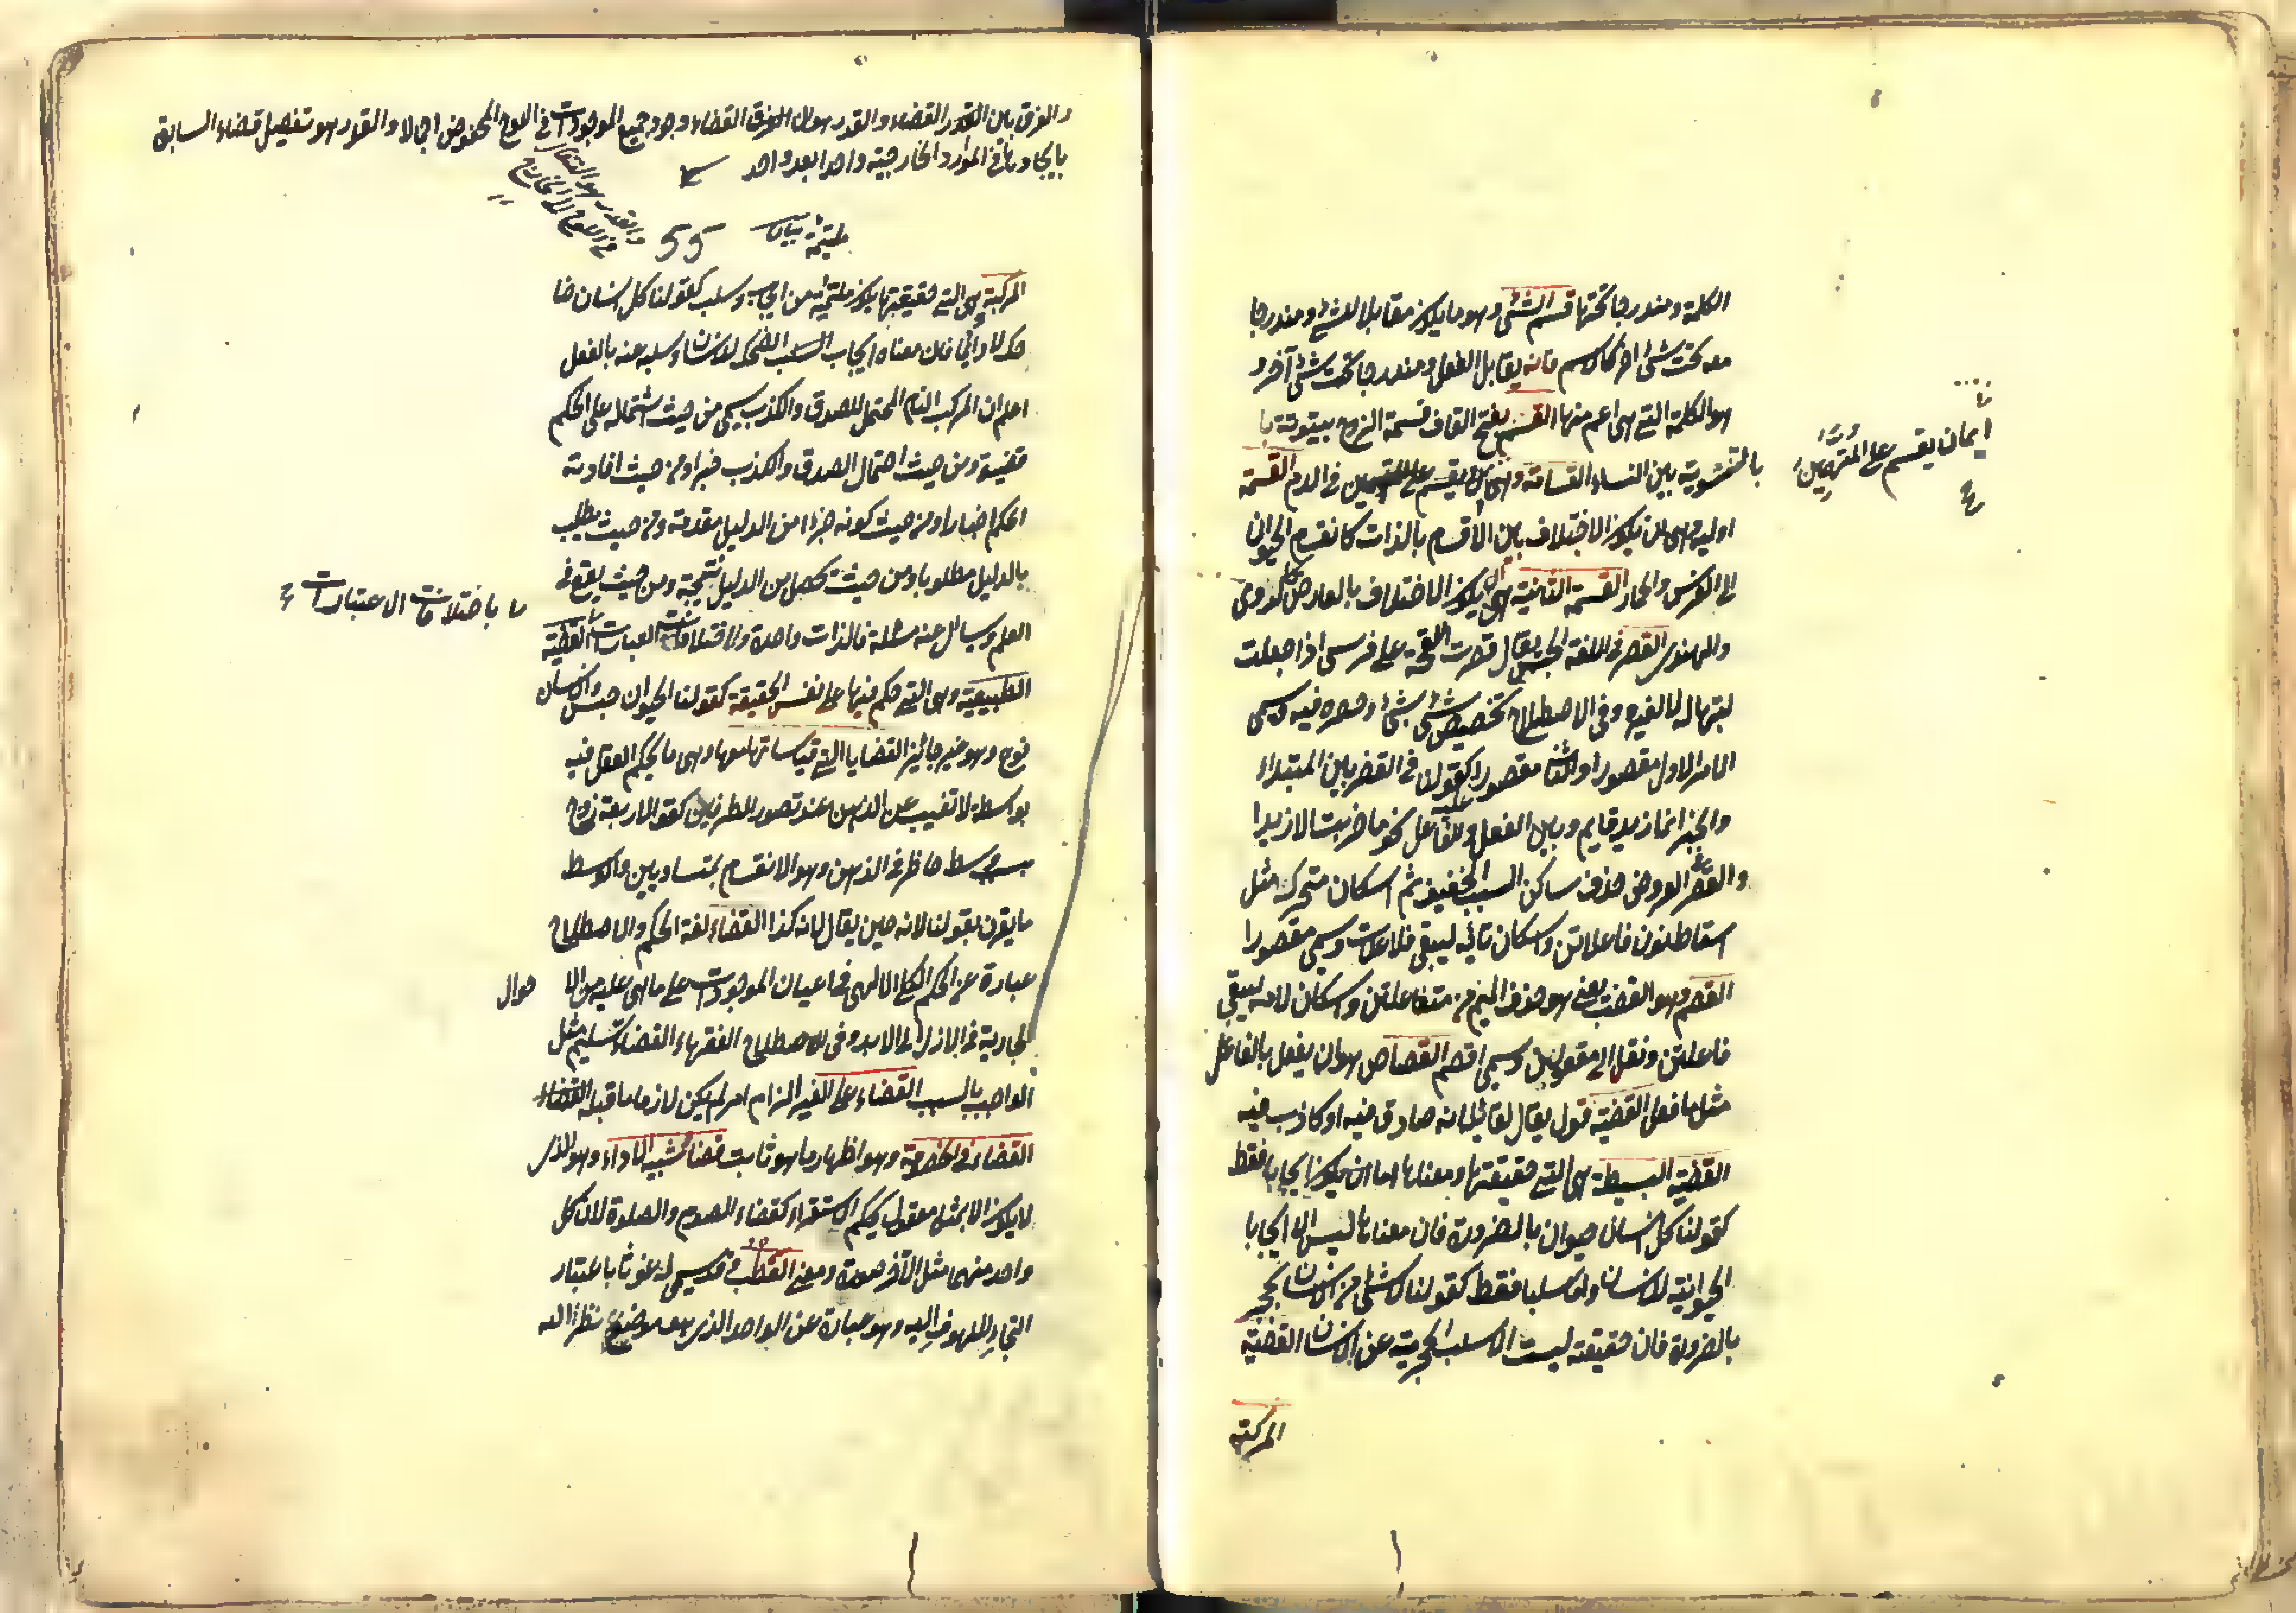 الكلمة ومندرجا تحتها قسم الشئ وهو ما يكون مقابلا للشئ ومندرجا
معه تحت شئ آخر كالاسم فانه يقابل الفعل ومندرجا تحت شئ آخر و
هو الكلمة التى هى اعم منها القسم بفتح القاف قسمة الزوج بيتوتة با
بالتسوية بين النساء القسامة وهى ايمان يقسم على المتهمين فى الدم القسمة
ايمان يقسم على المتهمين
اولية وهى ان يكون الاختلاف بين الاقسام بالذات كانقسام الحيوان
الى الفرس والحمار القسمة الثانية هى ان يكون الاختلاف بالعارض كالرومى
والهندى القصر فى اللغة الحبس يقال قصرت اللقحة على فرسى اذا جعلت
لبنها له لا لغيره وفى الاصطلاح تخصيص شئ بشئ وحصره فيه ويسمى
الامر الاول مقصورا والثانى مقصورا عليه كقولنا فى القصر بين المبتداء
والخبر انما زيد قايم وبين الفعل والفاعل نحو ما ضربت الا زيدا
والقصر فى العروض حذف ساكن السبب الخفيف ثم اسكان متحركه مثل
اسقاط نون فاعلاتن واسكان تائه ليبقى فاعلات ويسمى مقصورا
القصم وهو العضب يعنى هو حذف الميم من مفاعلتن واسكان لامه ليبقى
فاعلتن ونقل الى مفعولن ويسمى اقصم القصاص هو ان يفعل بالفاعل
مثل ما فعل القضية قول يقال لقائله انه صادق فيه او كاذب فيه
القضية البسيطة هى التى حقيقتها ومعناها اما ان يكون ايجابا فقط
كقولنا كل انسان حيوان بالضرورة فان معناها ليس الا ايجابا
الحيوانية للانسان واما سلبا فقط كقولنا لا شئ من الانسان بحجر
بالضرورة فان حقيقته ليست الا سلب الحجرية عن الانسان القضية
المركبة
والفرق بين القضاء والقدر هو ان القضاء وجود جميع الموجودات فى اللوح المحفوظ اجمالا والقدر هو تفصيل قضاء السابق
بايجادها فى المواد الخارجية واحدا بعد واحد
55
المركبة هى التى حقيقتها يكون ملتئمة من ايجاب وسلب كقولنا كل انسان ضا
حك لا دائما فان معناه ايجاب الضحك للانسان وسلبه عنه بالفعل
اعلم ان المركب التام المحتمل للصدق والكذب يسمى من حيث اشتماله على الحكم
قضية ومن حيث احتمال الصدق والكذب خبرا ومن حيث افادته
الحكم اخبارا ومن حيث كونه جزءا من الدليل مقدمة ومن حيث يطلب
بالدليل مطلوبا ومن حيث تحصل من الدليل نتيجة ومن حيث يقع فى
العلم ويسأل عنه مسئلة فالذات واحدة واختلافات العبارات القضية
باختلافات الاعتبارات
الطبيعية وهى التى حكم فيها على نفس الحقيقة كقولنا الحيوان جنس والانسان
نوع وهو غير جائز القضايا التى قياساتها معها وهى ما يحكم العقل فيه
بواسطة لا تغيب عن الذهن عند تصور الطرفين كقولنا الاربعة زوج
بسبب وسط حاظر فى الذهن وهو الانقسام بمتساويين والوسط
ما يقرن بقولنا لانه حين يقال لانه كذا القضاء لغة الحكم والاصطلاح
عبارة عن الحكم الكلى الالهى فى اعيان الموجودات على ما هى عليه من الا حوال
الجارية فى الازل الى الابد وفى الاصطلاح الفقهاء القضاء تسليم مثل
الواجب بالسبب القضاء على الغير الزام امر لم يكن لازما ما قبله
القضاء فى الخصومة وهو اظهار ما هو ثابت قضاء يشبه الاداء وهو الذى
لا يكون الا بمثل معقول بحكم الاستقراء كقضاء الصوم والصلوة لان كل
واحد منهما مثل الآخر صورة ومعنى القطب وقد يسمى غوثا باعتبار
التجاء الملهوف اليه وهو عبارة عن الواحد الذى هو موضع نظر الله